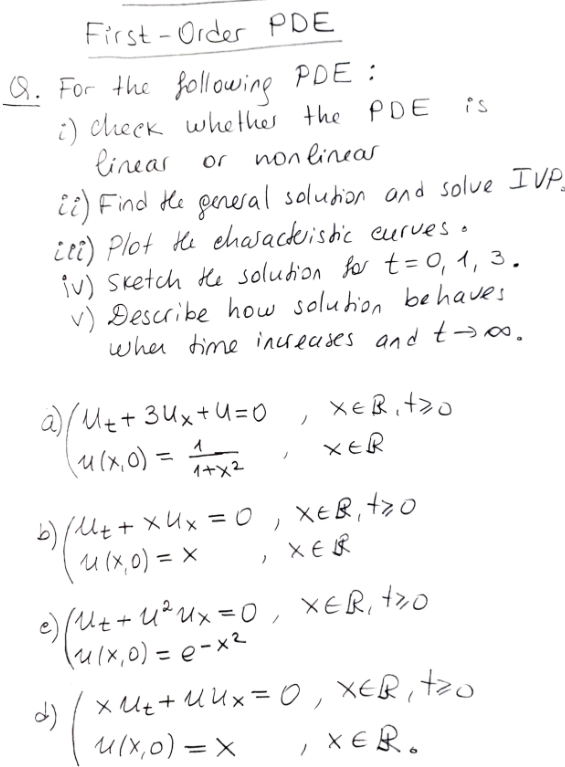 First-Order PDE
Q. For the following PDE :
i) check whether the PDE is
linear or nonlinear
ii) Find the general solution and solve IVP.
iii) Plot the characteristic curves.
iv) Sketch the solution for t=0, 1, 3.
v) Describe how solution behaves
when time increases and t→∞.
a) (u_t + 3u_x + u = 0 , x∈ℝ, t≥0
(u(x,0) = 1/(1+x²) , x∈ℝ
b) (u_t + x u_x = 0 , x∈ℝ, t≥0
(u(x,0) = x , x∈ℝ
c) (u_t + u² u_x = 0 , x∈ℝ, t≥0
(u(x,0) = e^{-x²}
d) ( x u_t + u u_x = 0 , x∈ℝ, t≥0
( u(x,0) = x , x∈ℝ.